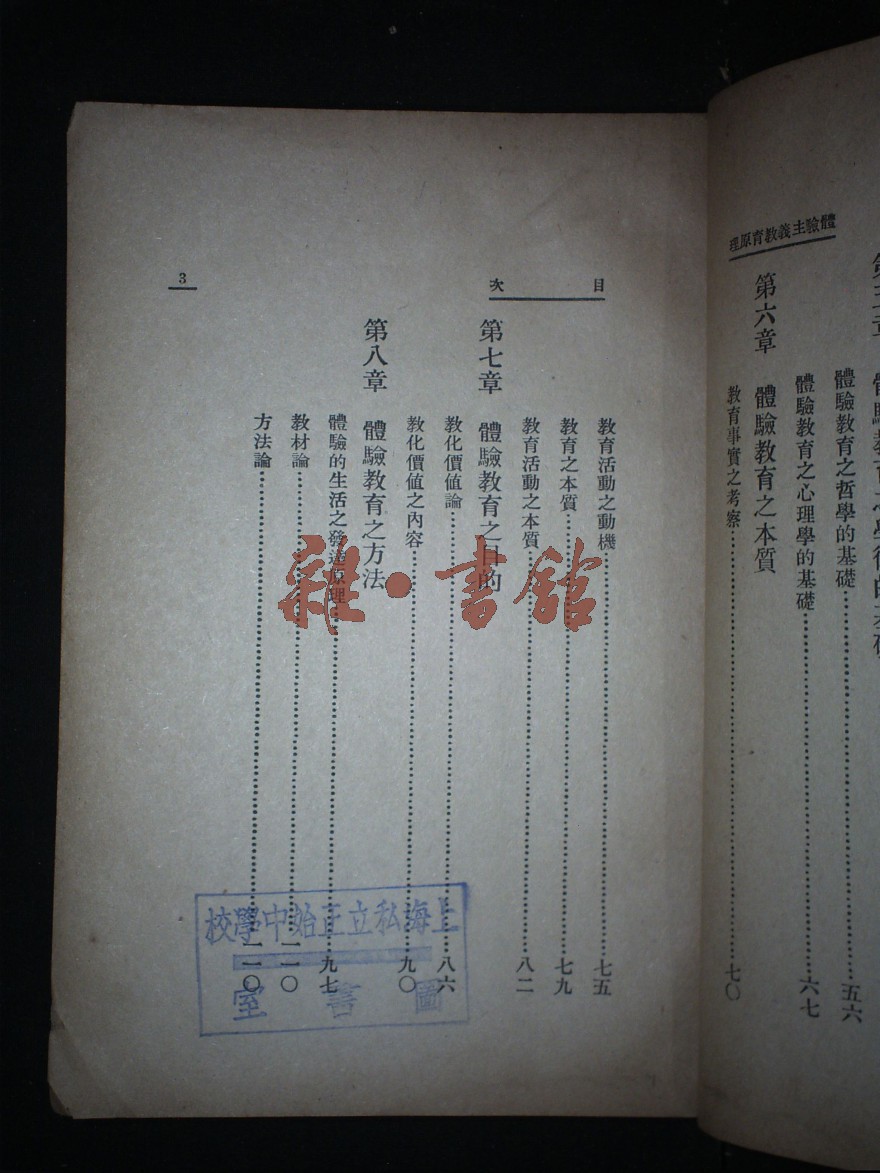 體驗主義教育原理
體驗教育之哲學的基礎……五六
體驗教育之心理學的基礎……六七
第六章 體驗教育之本質
教育事實之考察……七〇
目次
3
教育活動之動機……七五
教育之本質……七九
教育活動之本質……八二
第七章 體驗教育之目的
教化價値論……八六
教化價値之內容……九〇
第八章 體驗教育之方法
體驗的生活之發達原理……九七
教材論……一一〇
方法論……一一〇
雜·書館
上海私立正始中學校
圖書室